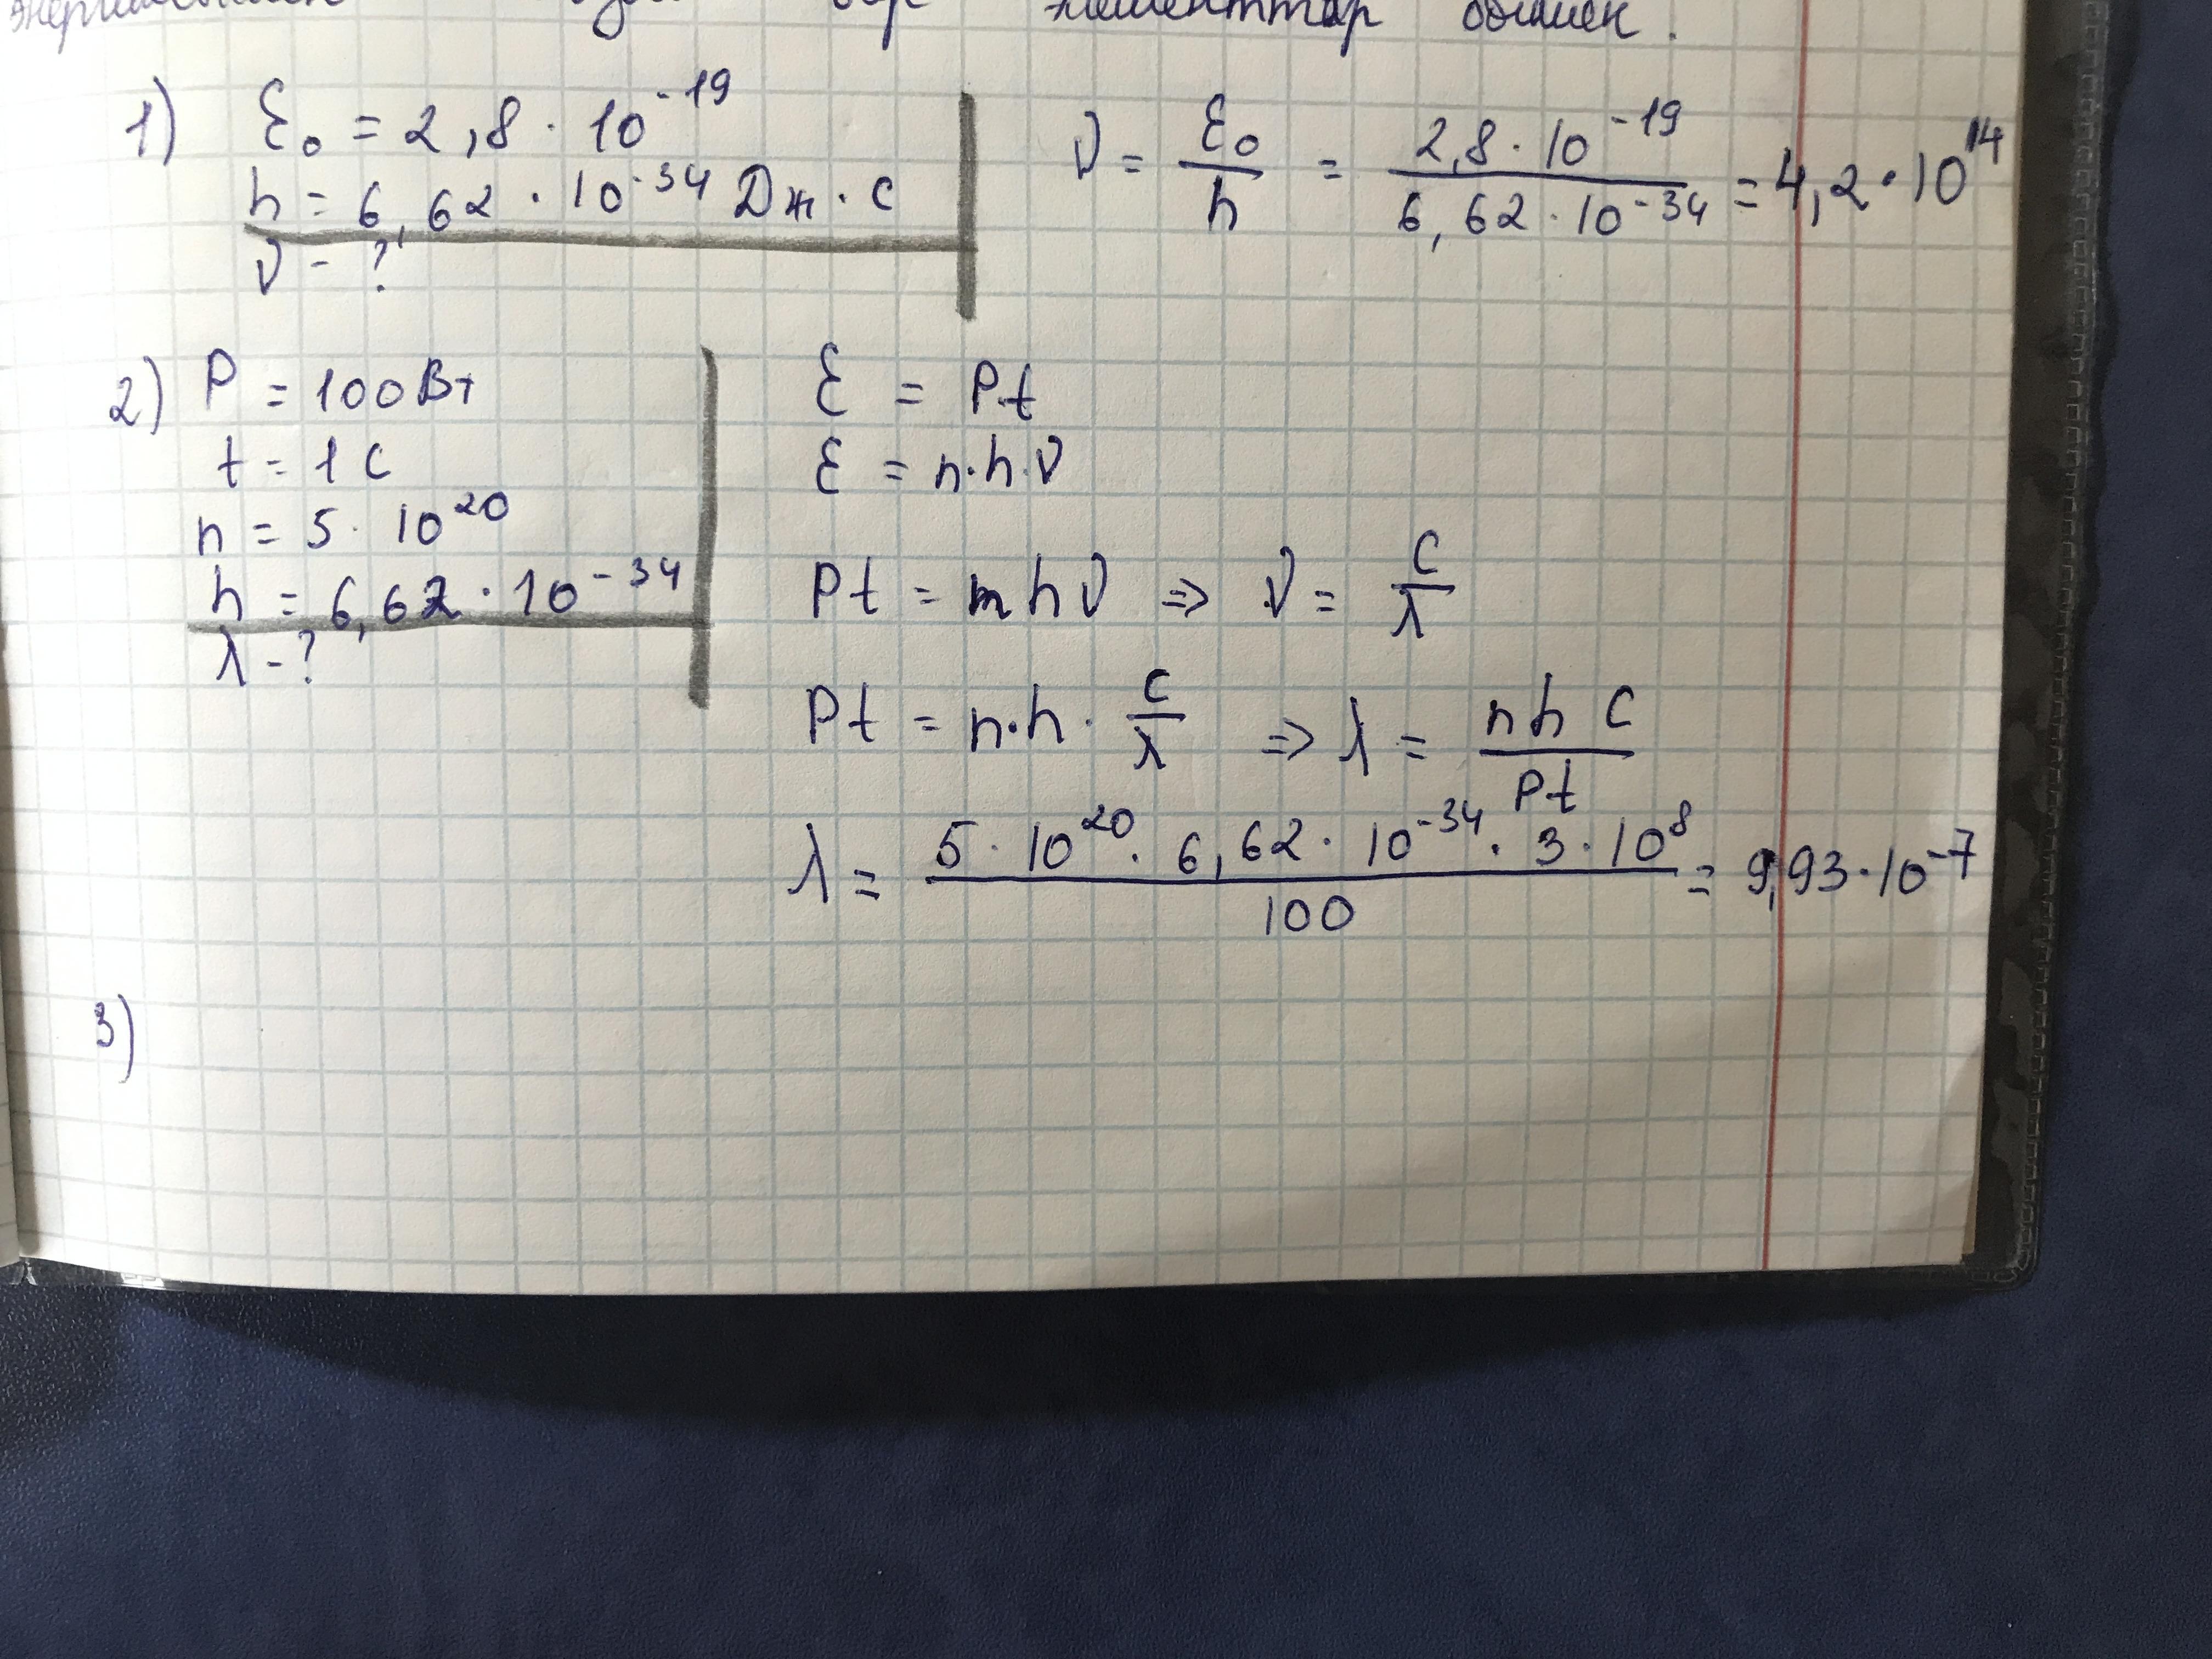 1) ℰ₀ = 2,8 · 10⁻¹⁹
h = 6,62 · 10⁻³⁴ Дж · с
ν - ?
ν = ℰ₀/h = 2,8 · 10⁻¹⁹ / 6,62 · 10⁻³⁴ = 4,2 · 10¹⁴
2) P = 100Вт
t = 1 с
n = 5 · 10²⁰
h = 6,62 · 10⁻³⁴
λ - ?
ℰ = Pt
ℰ = n·h·ν
Pt = nhν ⇒ ν = c/λ
Pt = n·h · c/λ ⇒ λ = nhc/Pt
λ = 5 · 10²⁰ · 6,62 · 10⁻³⁴ · 3 · 10⁸ / 100 = 9,93 · 10⁻⁷
3)